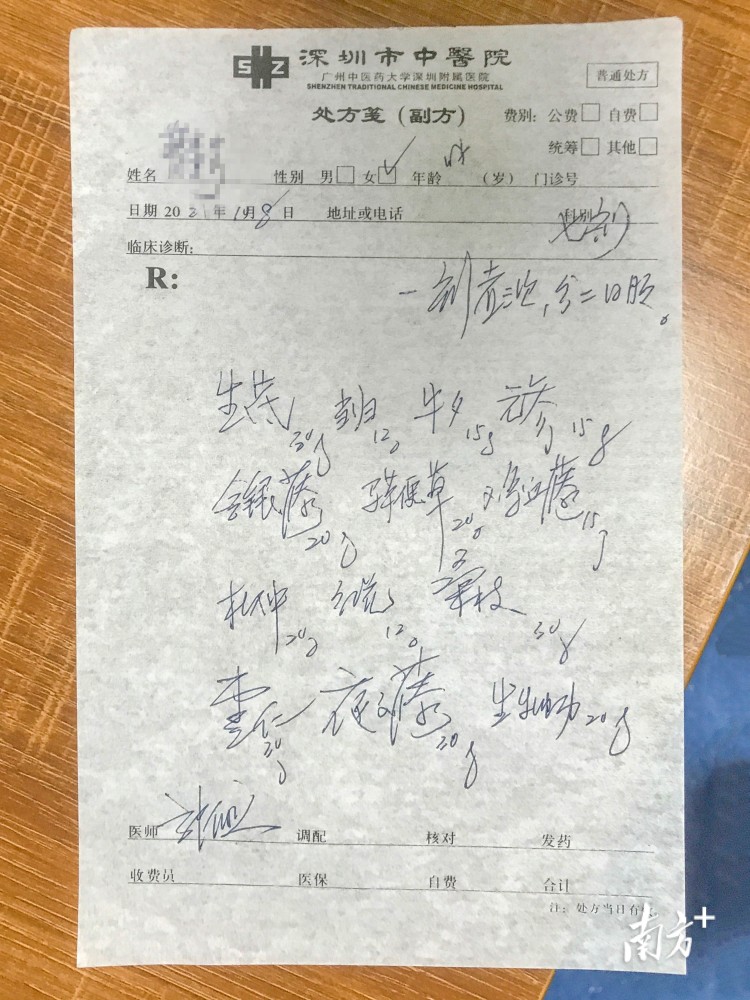 SZ 深圳市中醫院
广州中医药大学深圳附属医院
SHENZHEN TRADITIONAL CHINESE MEDICINE HOSPITAL
普通处方
处方笺（副方） 费别: 公费□ 自费□
统筹□ 其他□
姓名 性别 男□ 女□ 年龄 （岁） 门诊号
日期 202 年 1月8日 地址或电话 科别
七剂
临床诊断:
R:
一剂煮三次，分二日服。
生芪30g 当归12g 牛夕15g 元参15g
金银藤20g 20g 鸡血藤15g
杜仲20g 川断12g 桑枝30g
枣仁20g 夜交藤30g 生牡蛎20g
医师 调配 核对 发药
收费员 医保 自费 合计
注: 处方当日有
南方+